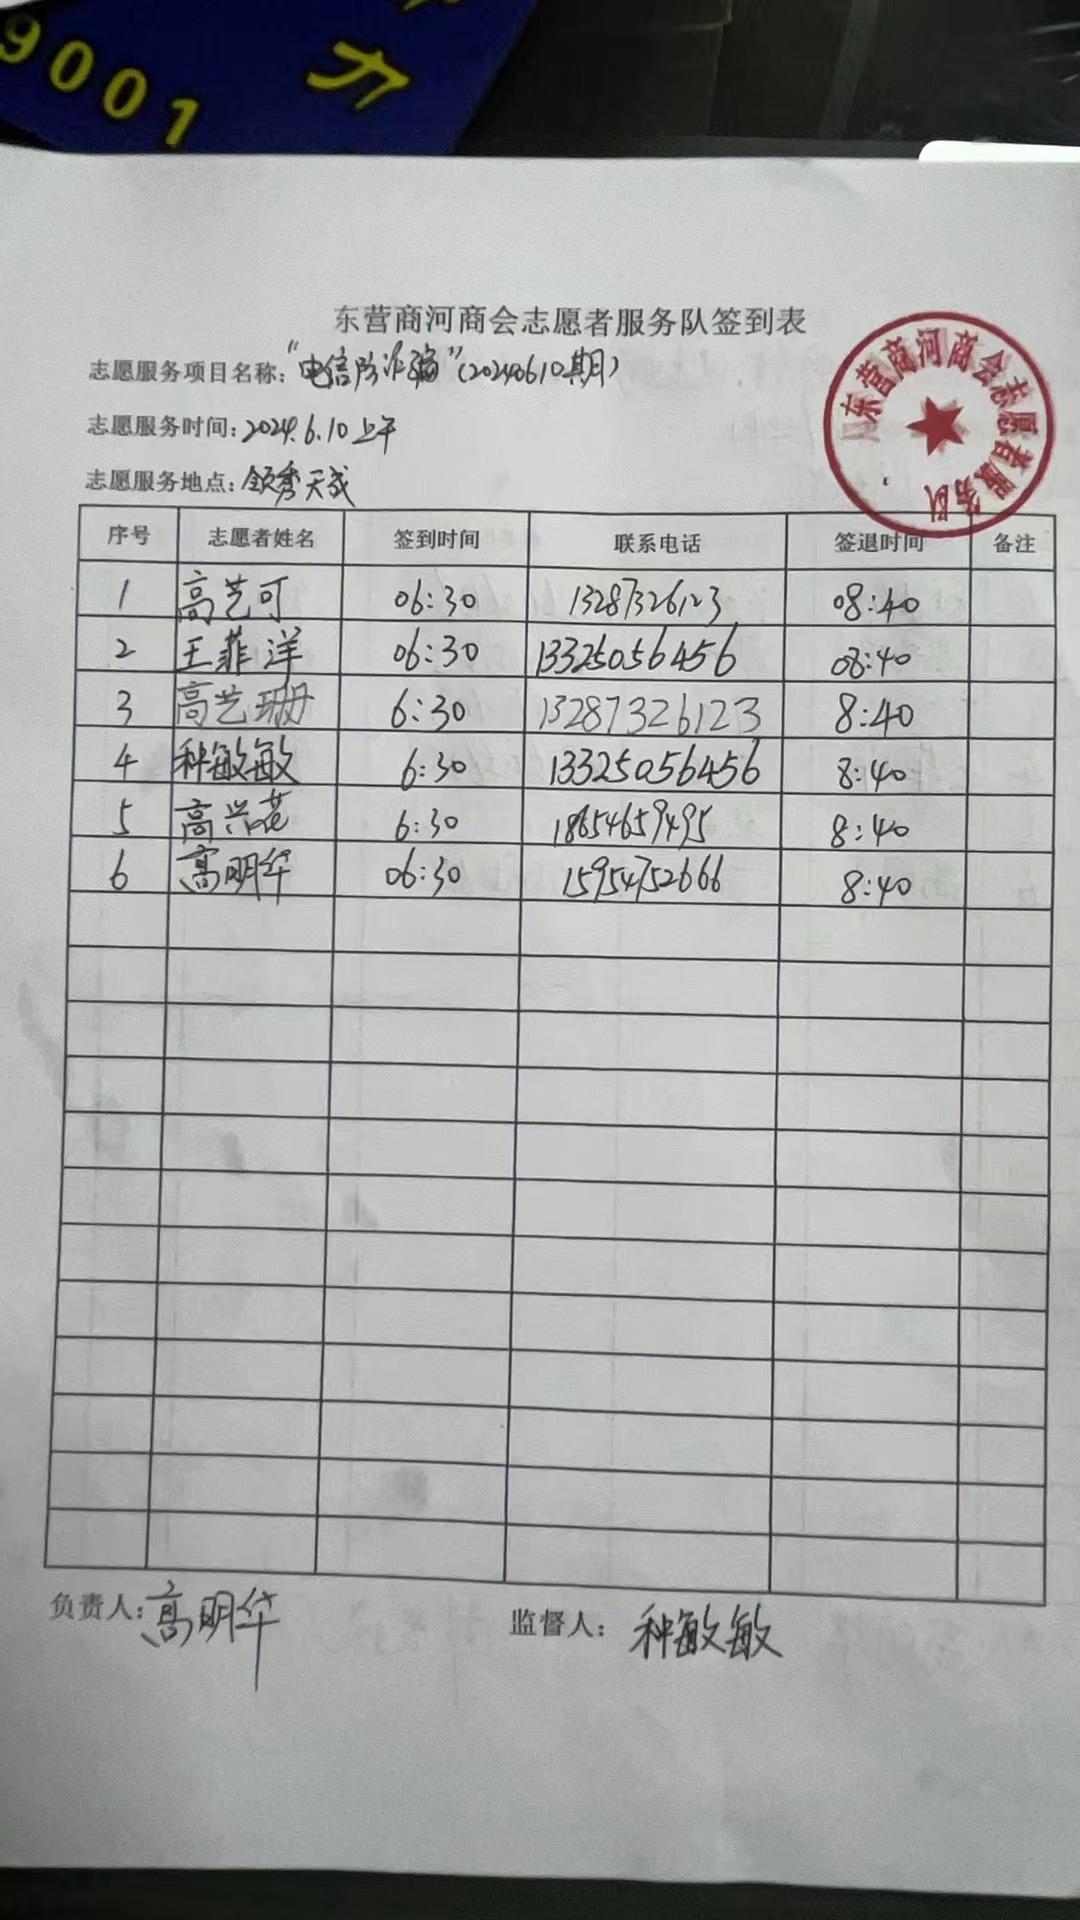 9001
力
东营商河商会志愿者服务队签到表
志愿服务项目名称:"电信防诈骗"(20240610期)
志愿服务时间:2024.6.10上午
志愿服务地点:领秀天成
东营商河商会志愿者服务队
序号 志愿者姓名 签到时间 联系电话 签退时间 备注
1 高艺可 06:30 13287326123 08:40
2 王菲洋 06:30 13325056456 08:40
3 高艺珊 6:30 13287326123 8:40
4 种敏敏 6:30 13325056456 8:40
5 高兴花 6:30 18654659495 8:40
6 高明华 06:30 15954752666 8:40
负责人:高明华 监督人:种敏敏